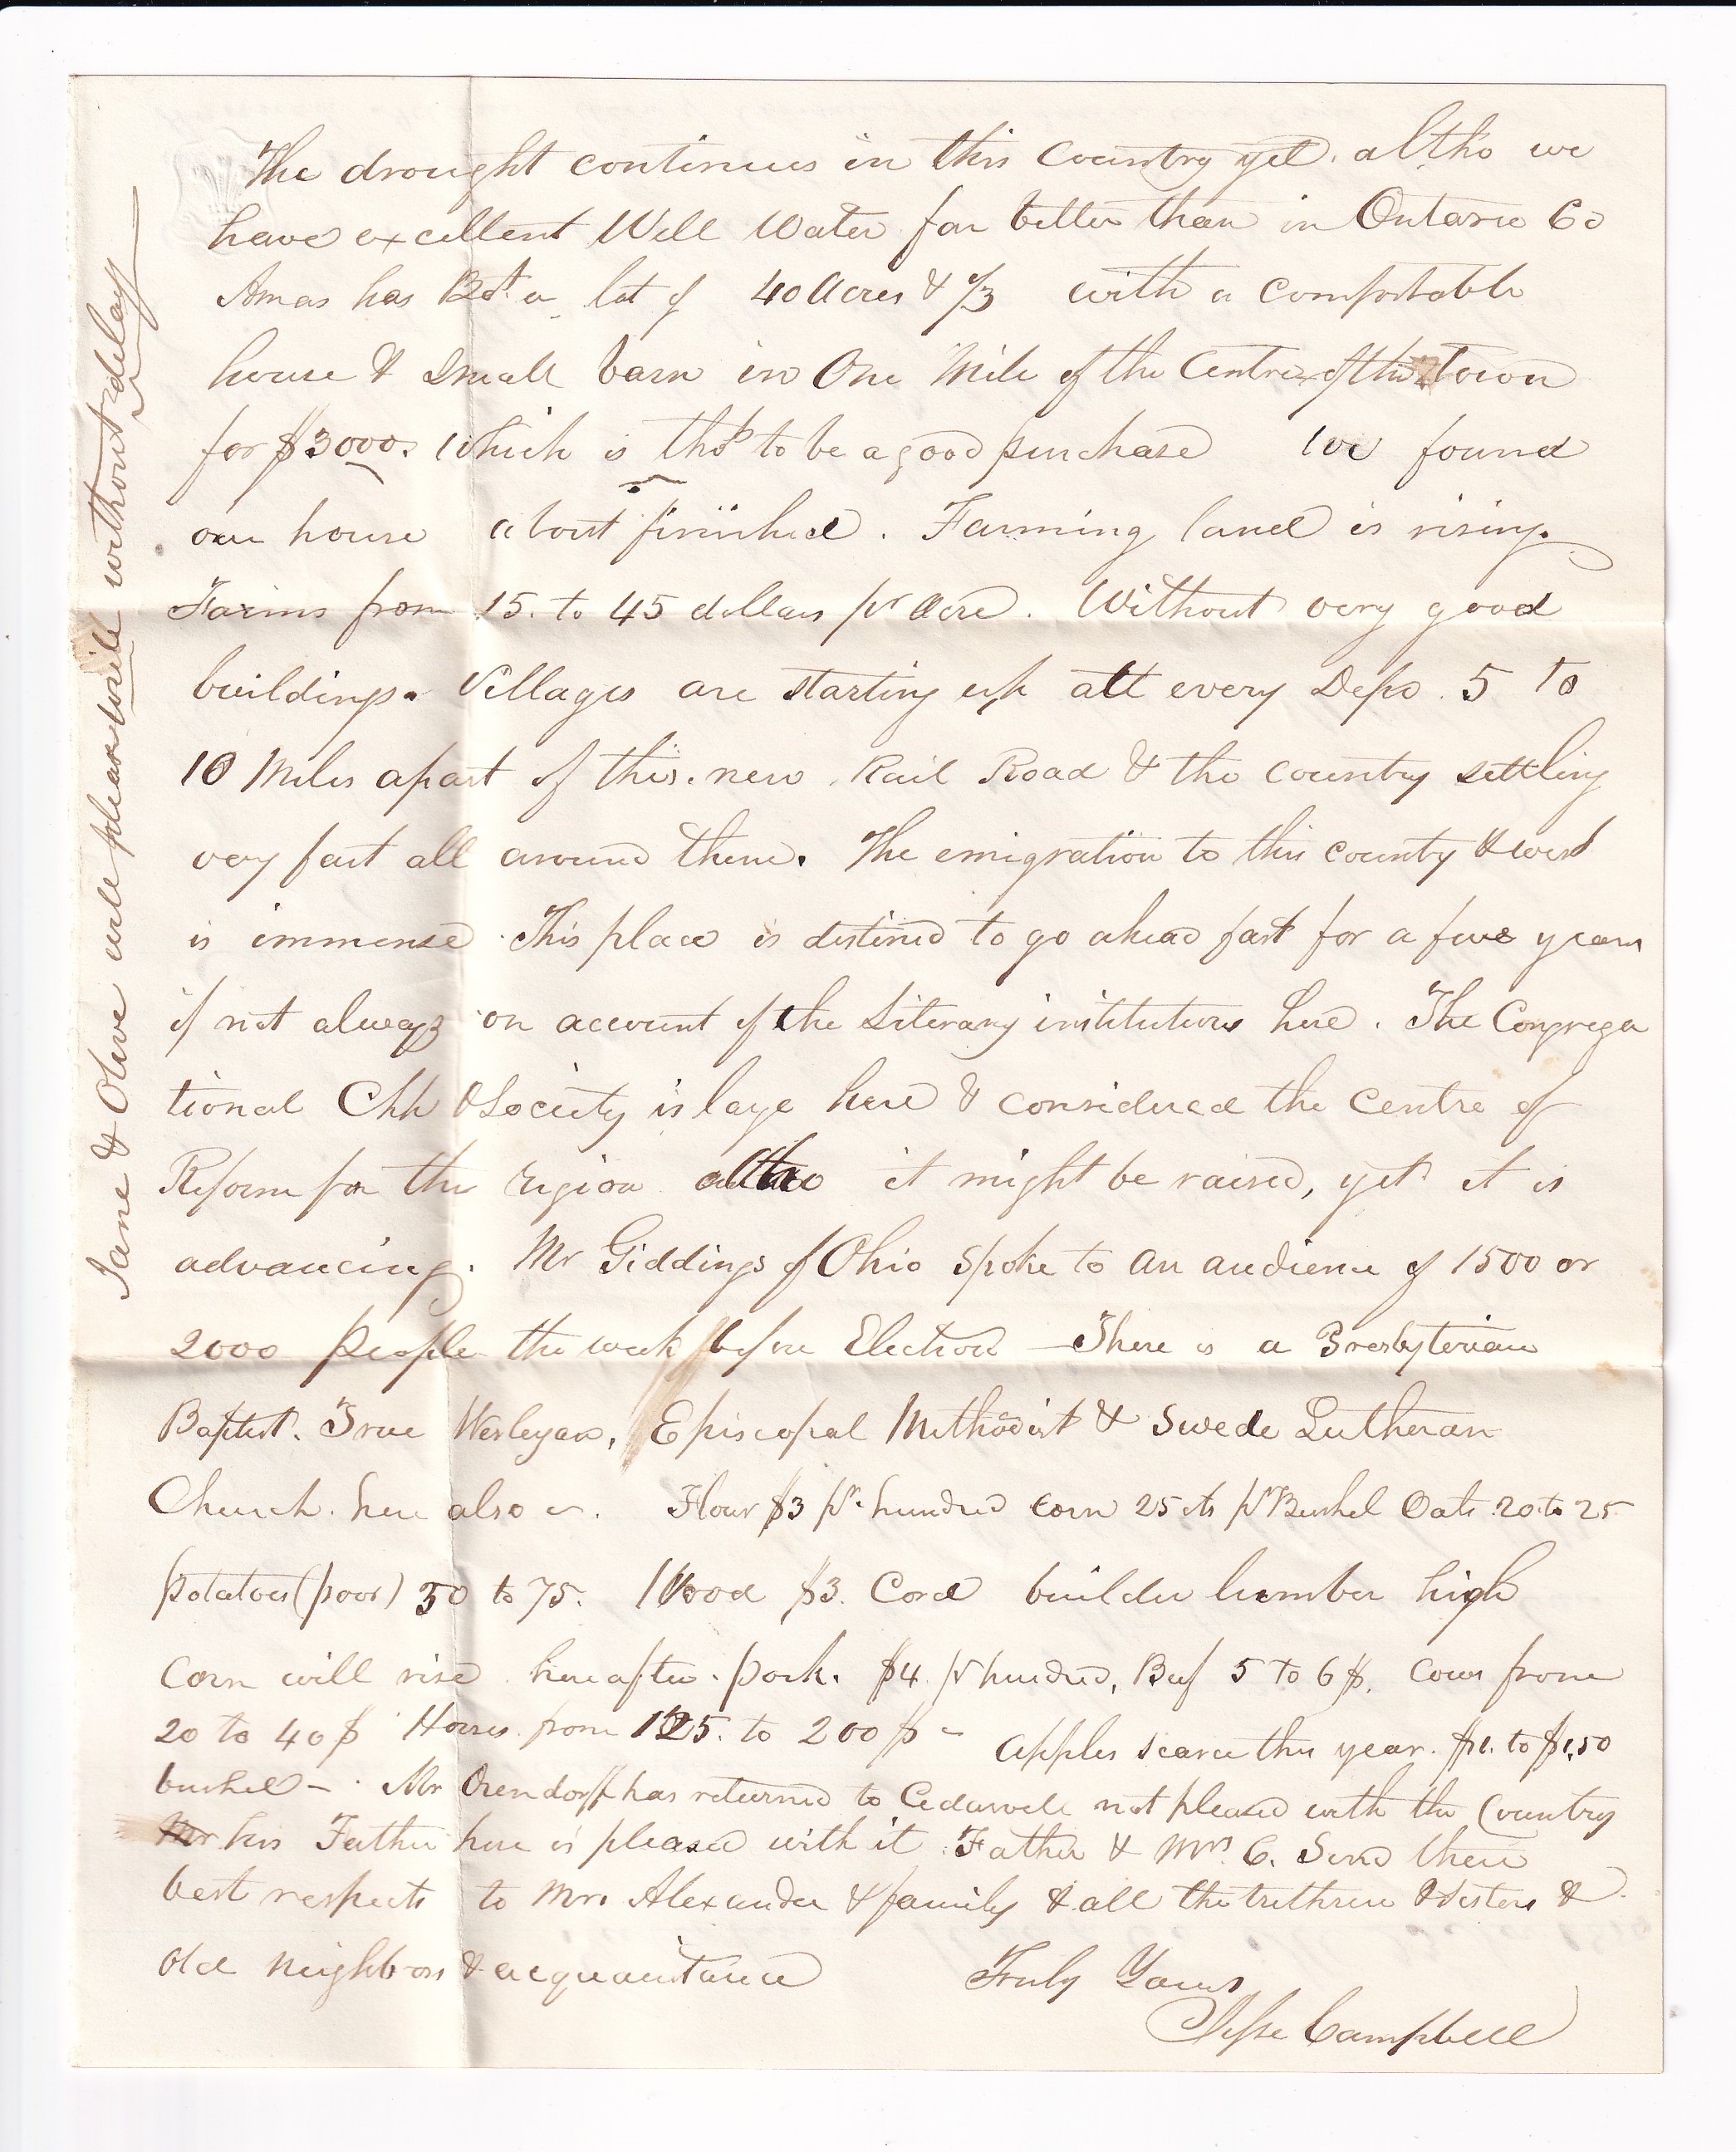 The drought continues in this Country yet. altho we
have excellent Well Water far better than in Ontario Co
Amas has Bot. a lot of 40 Acres & 1/3 with a comfortable
house & small barn in One Mile of the Centre of the Town
for $3000. Which is tho't to be a good purchase We found
our house about finished. Farming land is rising.
Farms from 15. to 45 dollars pr Acre. Without very good
buildings. Villages are starting up att every Depo. 5 to
10 Miles apart of this. new Rail Road & the country settling
very fast all around them. The emigration to this county & west
is immense. This place is destined to go ahead fast for a fiew years
if not always on account of the Literary institutions here. The Congrega
tional Chh & Society is large here & considered the Centre of
Reform for the region altho it might be raised, yet it is
advancing. Mr Giddings of Ohio Spoke to an audience of 1500 or
2000 People the week before Election - There is a Presbyterian
Baptist. True Wesleyan, Episcopal Methodist & Swede Lutheran
Church. here also. Flour $3 pr. hundred corn 25 cts pr Bushel Oats 20. to 25
potatoes (poor) 50 to 75. Wood $3. Cord builder lumber high
Corn will rise hereafter. pork. $4. pr hundred, Beef 5 to 6 $. Cows from
20 to 40 $ Horses from 125. to 200 $ - Apples scarce this year. $1. to $1,50
bushel - . Mr Orendorff has returned to Cedarvale not pleased with the Country
Mr his Father here is pleased with it. Father & Mrs. C. Send their
best respects to Mrs Alexander & family & all the brethren & Sisters &
Old neighbors & acquaintance Truly Yours
Jesse Campbell
Jane & Olive will please write without delay